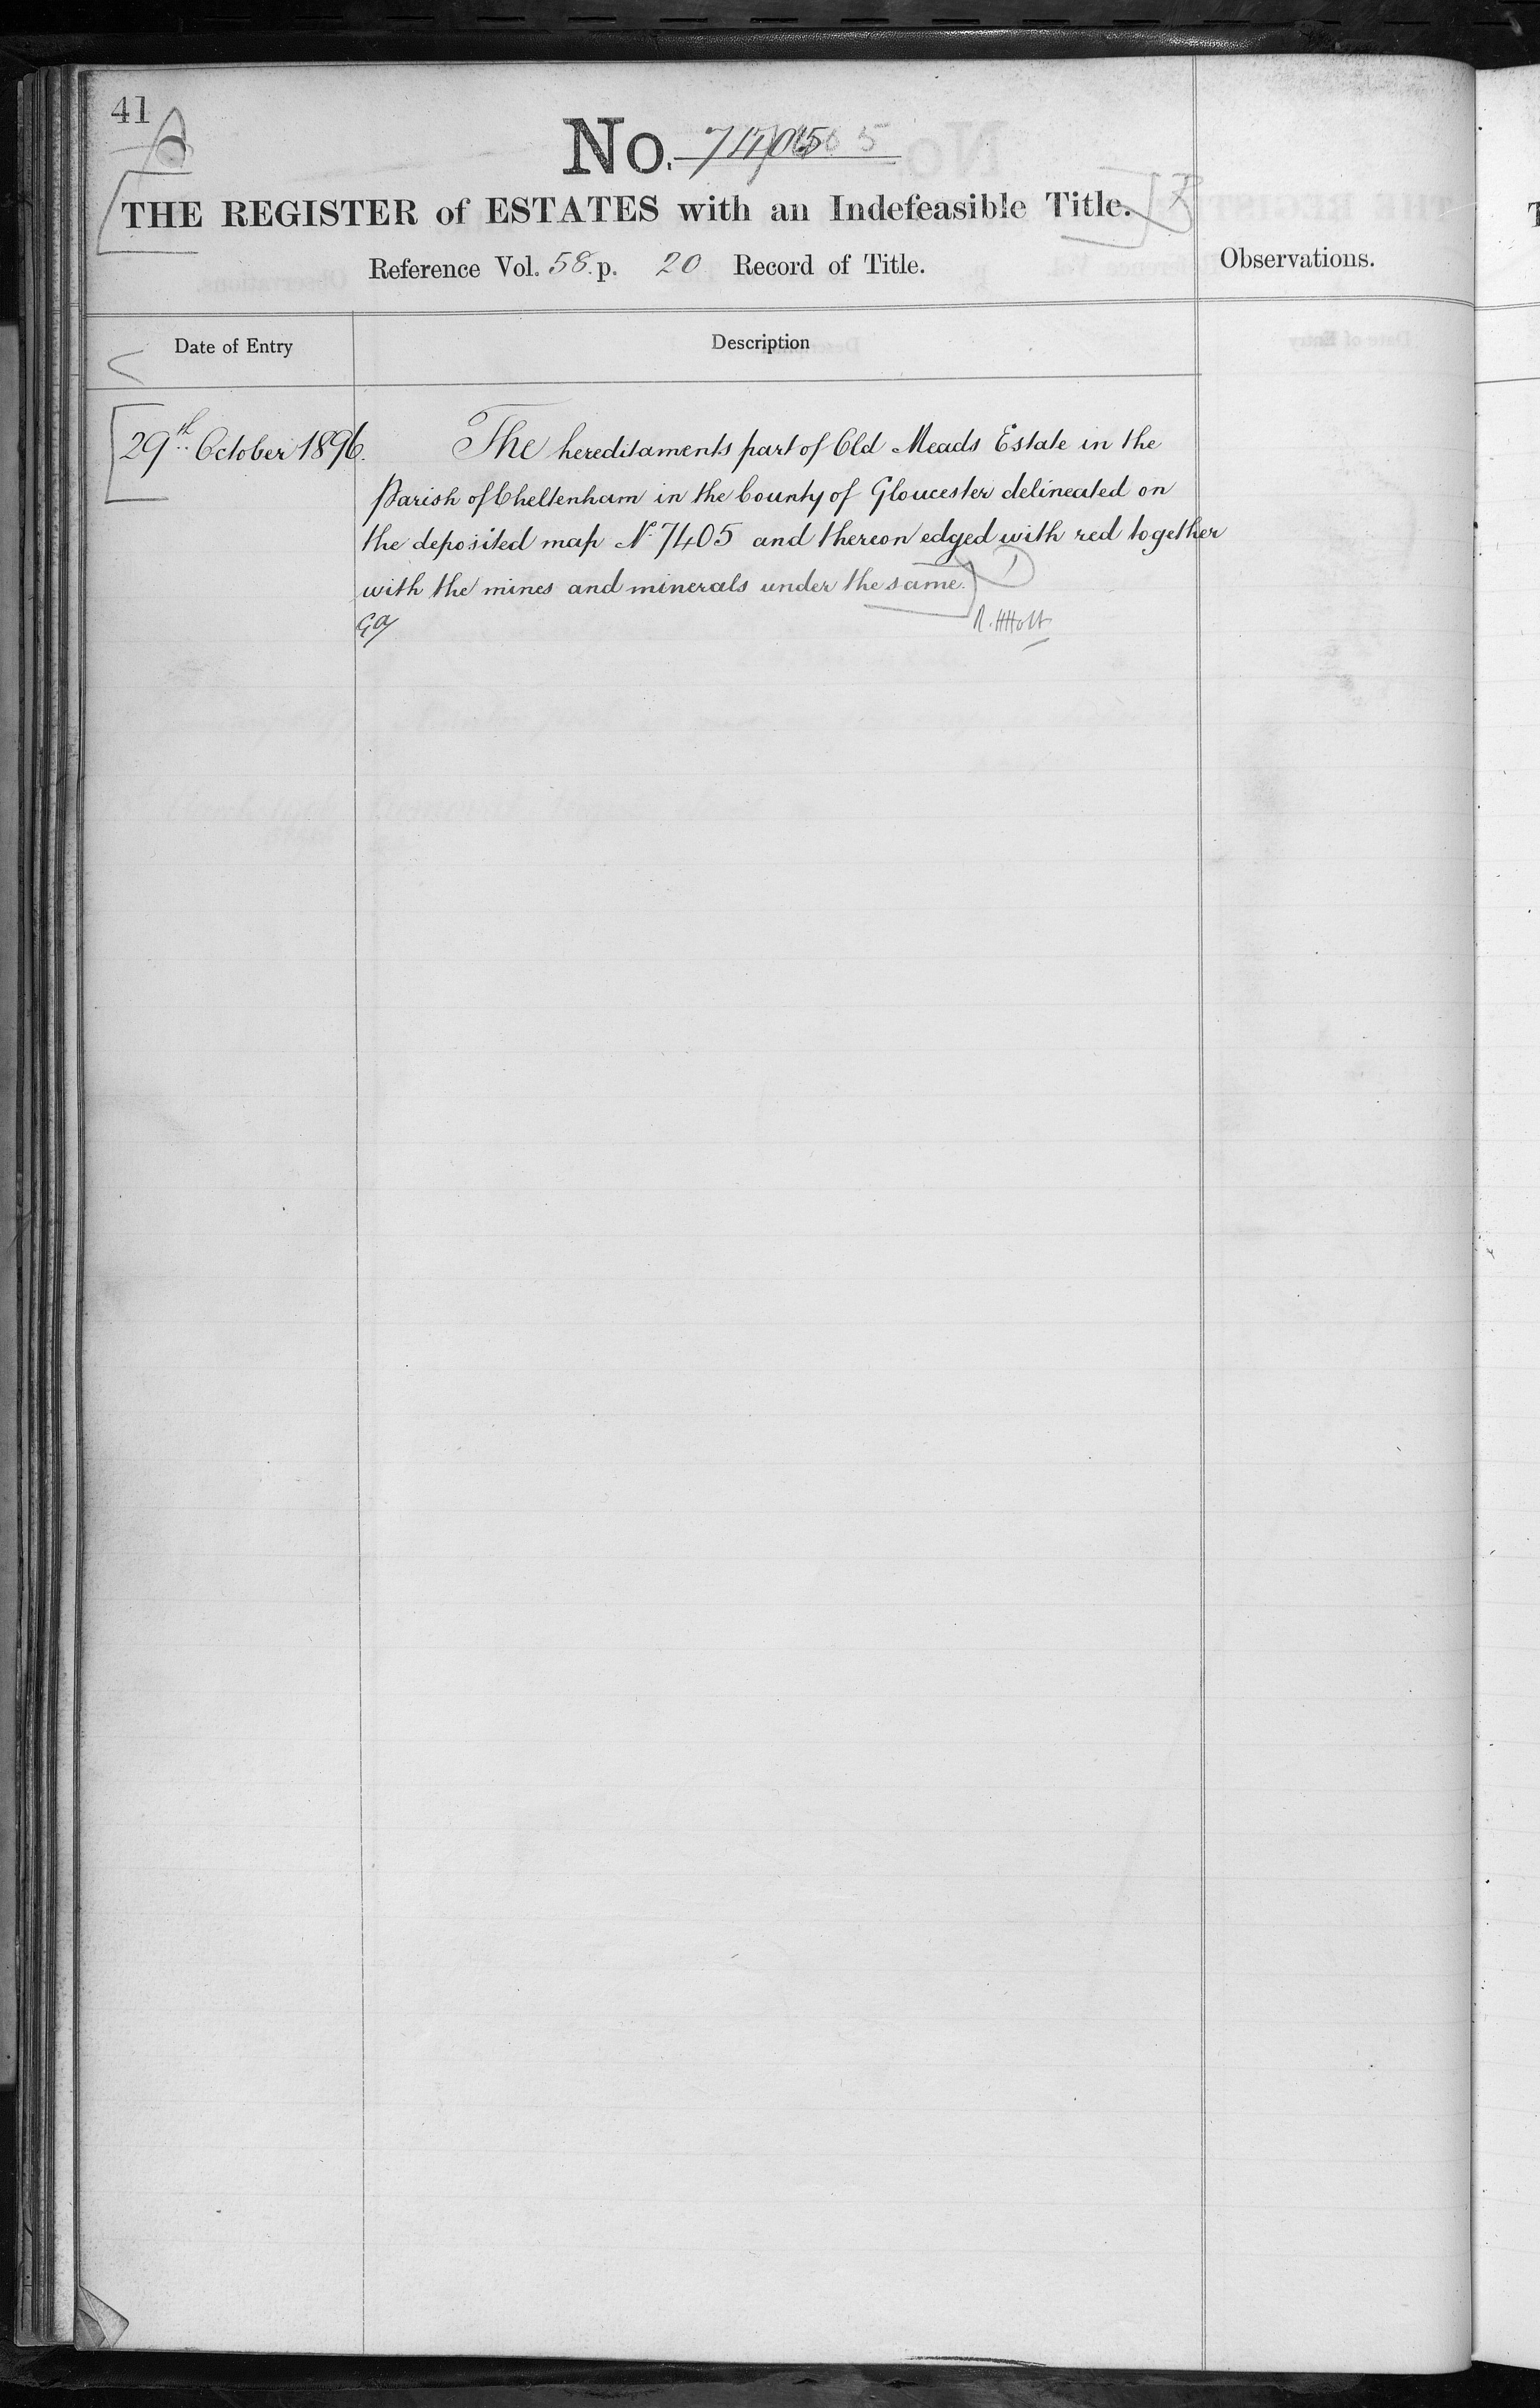 41
No. 7405
THE REGISTER of ESTATES with an Indefeasible Title.
Reference Vol. 58. p. 20 Record of Title.
Observations.
Date of Entry
Description
29th October 1896.
The hereditaments part of Old Meads Estate in the
Parish of Cheltenham in the County of Gloucester delineated on
the deposited map No 7405 and thereon edged with red together
with the mines and minerals under the same.
R. H Holt